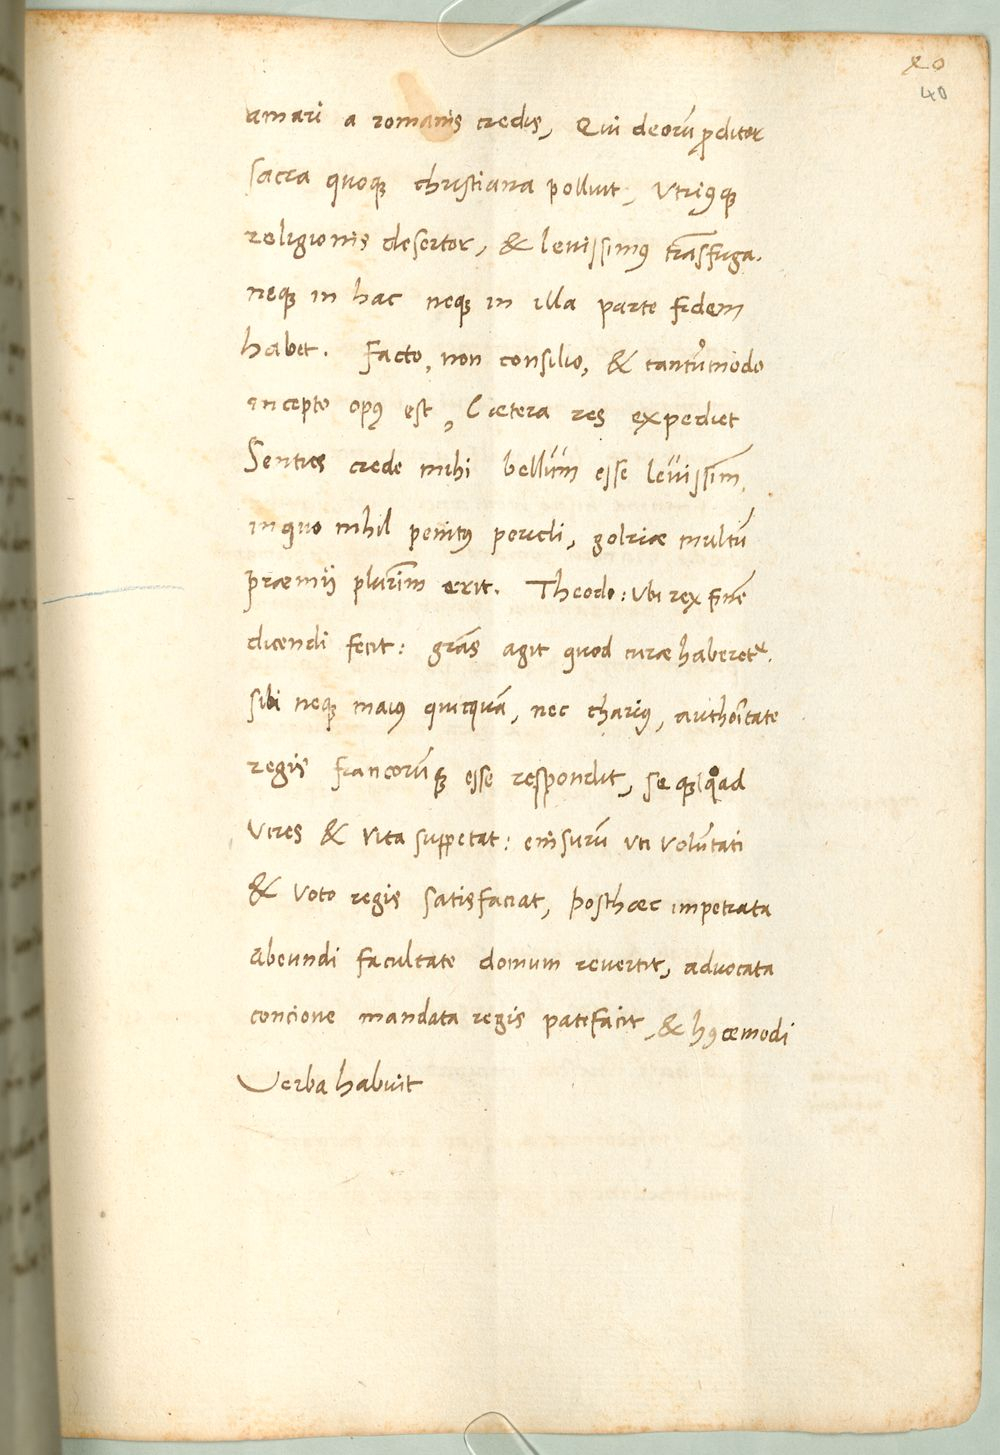 40
40
amari a romanis credis, Qui deorũ ꝓditor
sacra quoqꝫ christiana polluit, Utriꝰqꝫ
religionis desertor, & leuissimꝰ trãsfuga.
neqꝫ in hac neqꝫ in illa parte fidem
habet. Facto, non consilio, & tantũmodo
incepto opꝰ est, Cætera res expediet
Senties crede mihi bellum esse leuissim̃,
in quo nihil penitꝰ pericli, golriæ multũ
præmij plurim̃ erit. Theodo: Ubi rex finẽ
dicendi fecit: grãs agit quod curæ haberetᷣ.
sibi neqꝫ maiꝰ quicquã, nec chariꝰ, authoritate
regis francorũqꝫ esse respondit, se qꝫ quoad
Vires & vita suppetat: enisurũ uti volũtati
& voto regis satisfaciat, Posthæc impetrata
abeundi facultate domum reuertit, advocata
concione mandata regis patefacit, & hꝰcemodi
Verba habuit